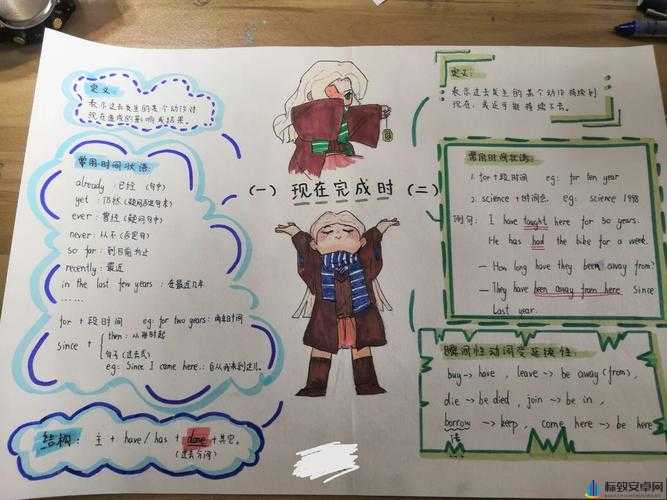 定义:
表示过去发生的某个动作对
现在造成的影响或结果。
常用时间状语:
already:已经(句中)
yet:仍然(疑问否定句末)
ever:曾经(疑问句中)
never:从不(否定句)
so far:到目前为止
recently:最近
in the last few years:在最近几年
......
for+段时间 eg: for two years:两年时间
since + then:从那时起
句子(过去式)
eg: Since I came here:自从我来到这儿。
结构:主+have/has+done+其它。
(过去分词)
(一)现在完成时(二)
定义:
表示过去发生的某个动作持续到
现在,或还可能持续下去。
常用时间状语:
1. for+段时间 eg: for ten year
2. science+时间点 eg: science 1998
例句:I have taught here for 30 years.
He has had the bike for a week.
— How long have they been away from?
— They have been away from here since
last year.
瞬间性动词变延续性:
buy→have, leave→be away(from),
die→be died, join→be in,
borrow→keep, come here→be here
借
标致安卓网